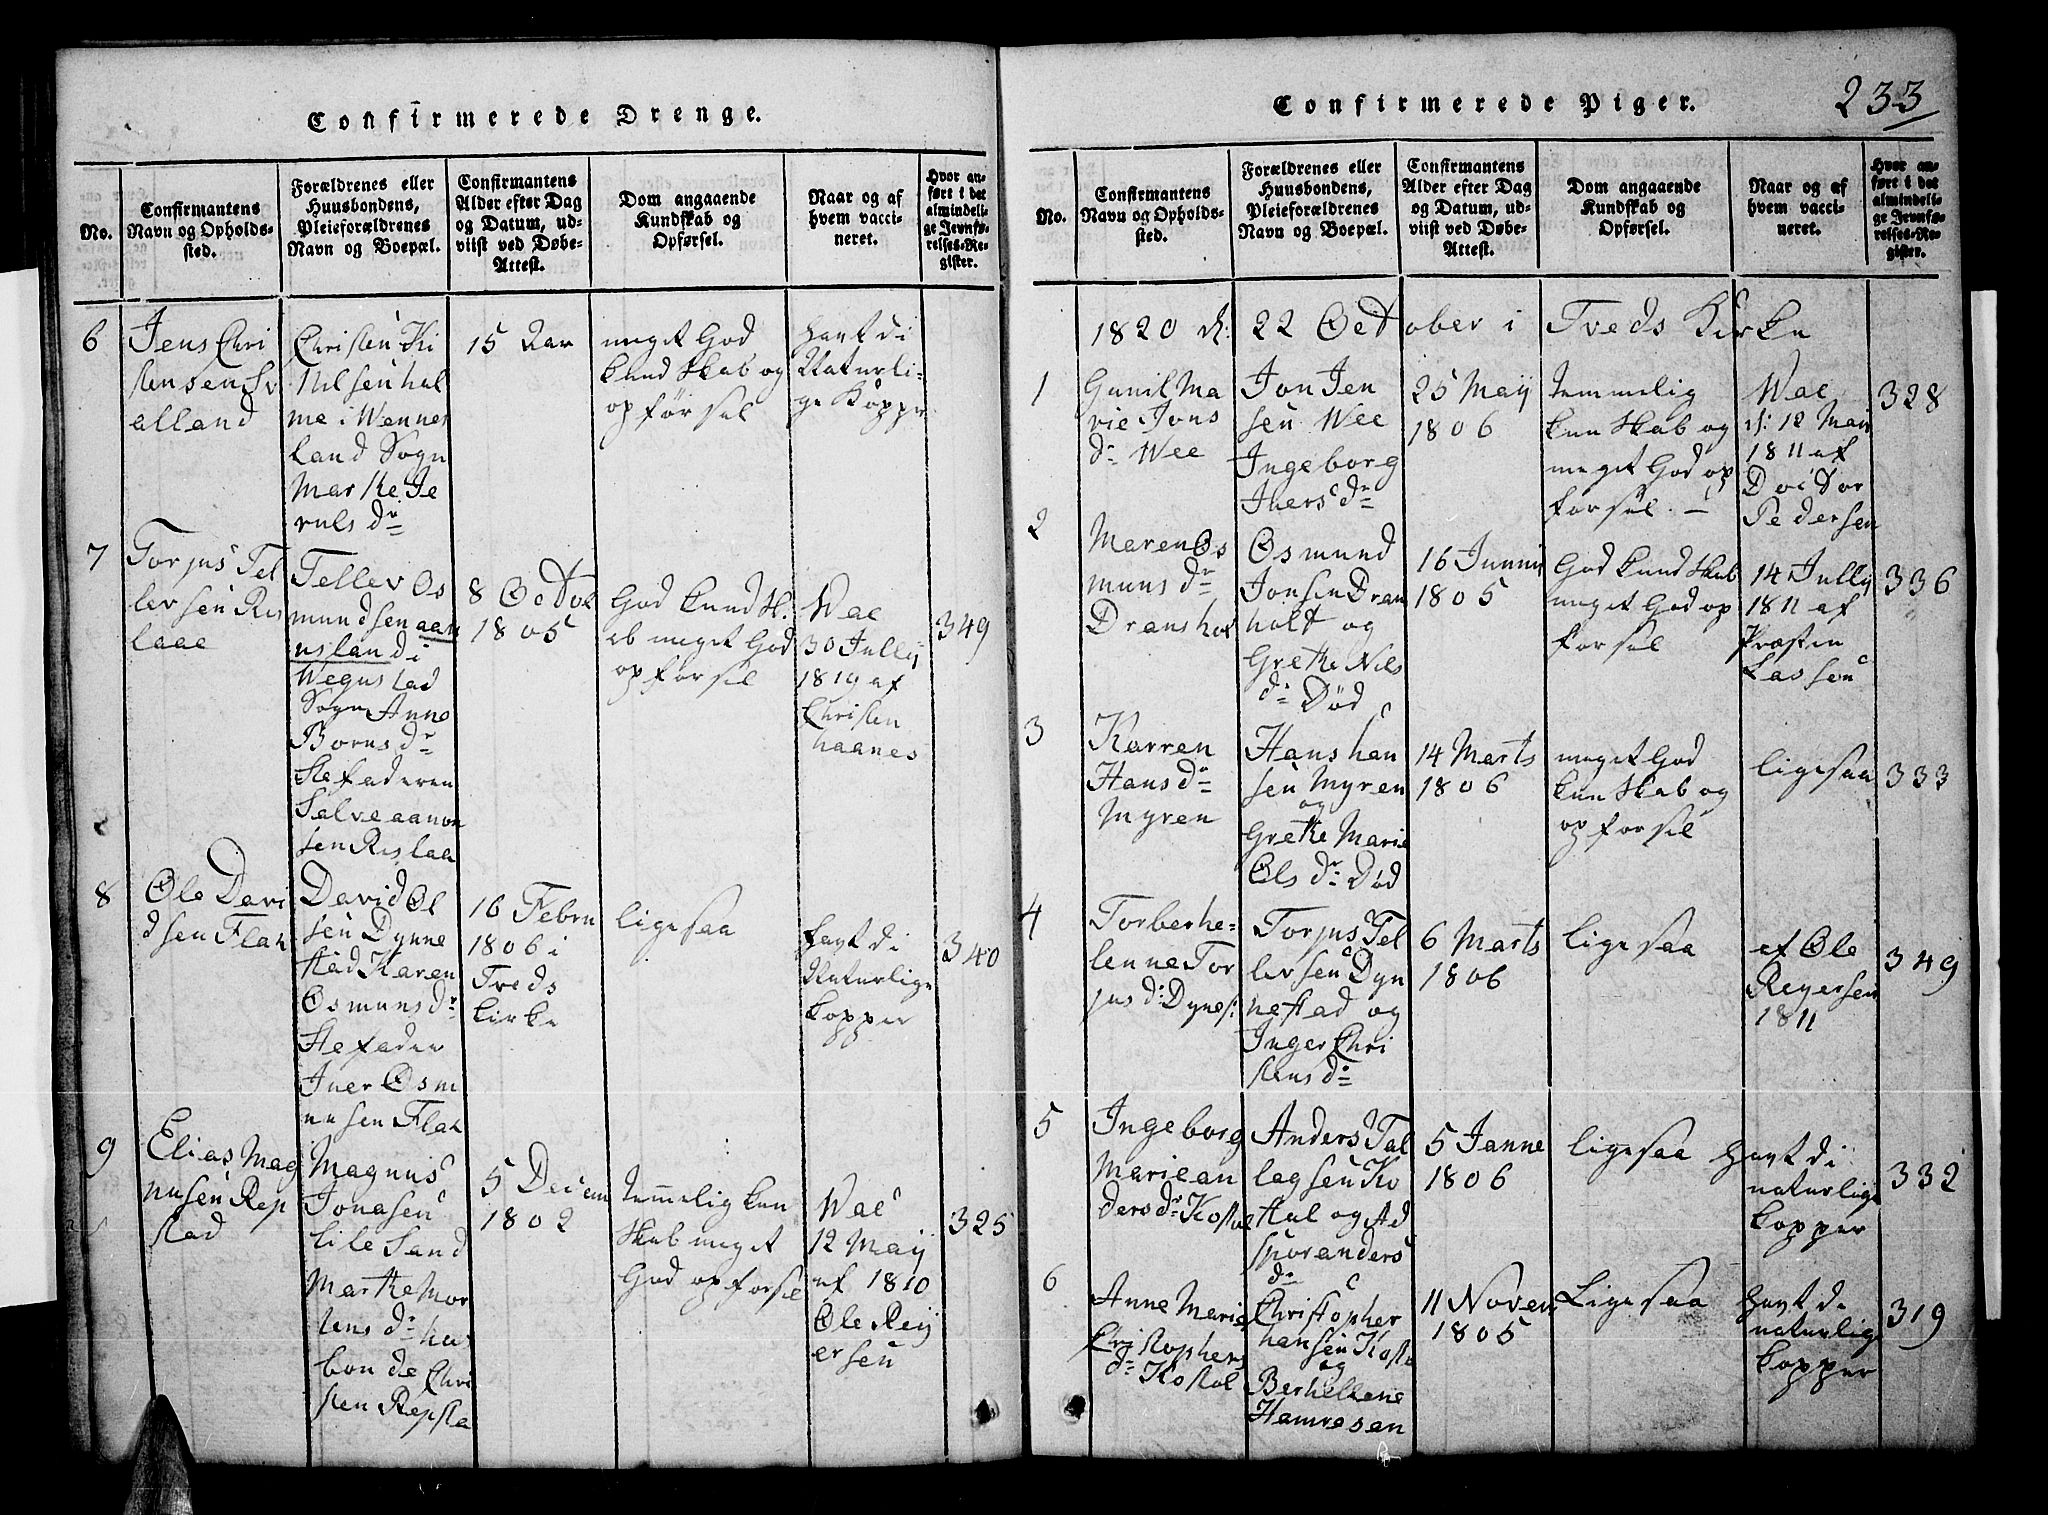 Confirmerede Drenge.
No.
Confirmantens
Navn og Opholds-
sted.
Forældrenes eller
Huusbondens,
Pleieforældrenes
Navn og Boepæl.
Confirmantens
Alder efter Dag
og Datum, ud-
viist ved Døbe-
Attest.
Dom angaaende
Kundskab og
Opførsel.
Naar og af
hvem vacci-
neret.
Hvor an-
ført i det
almindeli-
ge Jevnfø-
relses-Re-
gister.
6
Jens Chri
stensen
alland
Christen Ki
Nilsen hol
me i Wennes
land Sogn
Marthe Je
dr
15 Aar
meget God
kundskab og
opførsel
havt di
Naturli-
ge Kopper
7
Torjus Tel
lefsen Ris
laae
Tellev Os
mundsen aan
usland i
Wegus lad
Sogn Anne
Borns dr
Stefaderen
Salve aanon
sen Rislaa
8 Octob
1805
God kundsk.
ab meget God
opforsel
Wac
30 Jullij
1819 af
Christen
haanes
349
8
Ole Davi
dsen Flak
David Ol
sen Dynne
stad Karen
Osmuns dr
Stefader
Iver Osm
unsen Flak
16 Febru
1806 i
Treds
kirke
ligesaa
havt di
Naturlige
kopper
340
9
Elias Mag
nusen Rep
stad
Magnus
Jonasen
Lile Sand
Marthe Mor
tens dr hus
bonde Chri
sten Repsta
5 Decem
1802
temmelig kun
skab meget
God opforsel
Wac
12 Maij
af 1810
Ole Reij
ersen
325
Confirmerede Piger.
233
No.
Confirmantens
Navn og Opholds-
sted.
Forældrenes eller
Huusbondens,
Pleieforældrenes
Navn og Boepæl.
Confirmantens
Alder efter Dag
og Datum, ud-
viist ved Døbe-
Attest.
Dom angaaende
Kundskab og
Opførsel.
Naar og af
hvem vacci-
neret.
Hvor an-
ført i det
almindeli-
ge Jevnfø-
relses-Re-
gister.
1820 d: 22 October i Treds Kirke
1
Gunil Ma
rie Jons
dr Wee
Jon Jen
sen Wee
Ingeborg
Ihers dr
25 Maij
1806
temmelig
kunskab og
meget God op
forsel.
Wac
d: 12 Mai
1811 af
Doctor
Pedersen
328
2
Maren Os
muns dr
Dransholt
Osmund
Jonsen Dran
holt og
Grethe Nils
dr Død
16 Junni
1805
God kundskab
meget God op
forsel
14 Jullij
1811 af
Præsten
Lassen
336
3
Karren
Hans dr
Myren
Hans han
sen Myren
og
Grethe Marie
Ols dr Død
14 Marts
1806
meget God
kunskab og
opforsel
ligesaa
333
4
Torberhe-
lenne Tor
jus dr Dynes:
Torjus Tel
lefsen Dyn
nestad og
Inger Chri
stens dr
6 Marts
1806
ligesaa
af Ole
Reyersen
1811
349
5
Ingeborg
Marie an
ders dr Kostøl
Anders Tal
lagsen Ko
støl og Ad
spor anders
dr
5 Janne
1806
ligesaa
havt di
naturlige
kopper
332
6
Anne Marie
Christophers
dr Kostøl
Christopher
hansen Kostø
og
Berhellene
Hamresan
11 Novem
1805
Ligesaa
havt de
naturlige
kopper
319